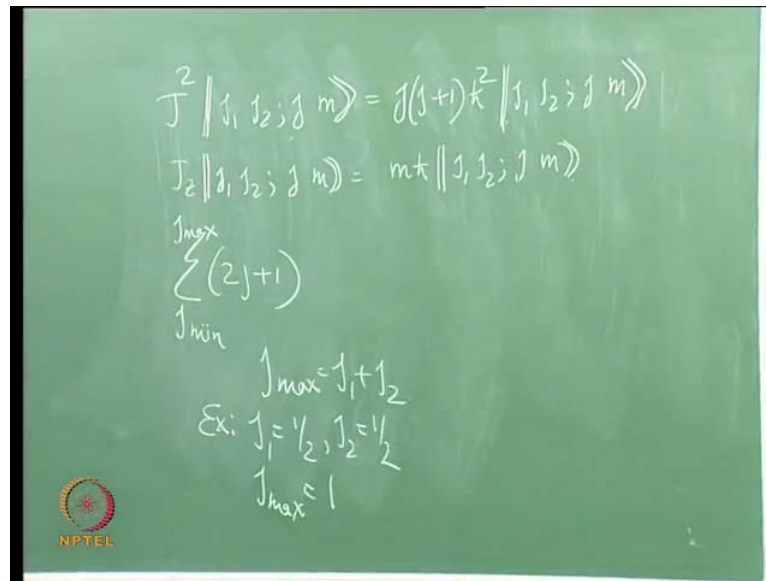 J² ‖j₁ j₂; j m⟩⟩ = j(j+1)ħ² ‖j₁ j₂; j m⟩⟩
J_z ‖j₁ j₂; j m⟩⟩ = mħ ‖j₁ j₂; j m⟩⟩
j_max
Σ(2j+1)
j_min
j_max = j₁ + j₂
Ex: j₁ = 1/2, j₂ = 1/2
j_max = 1
NPTEL